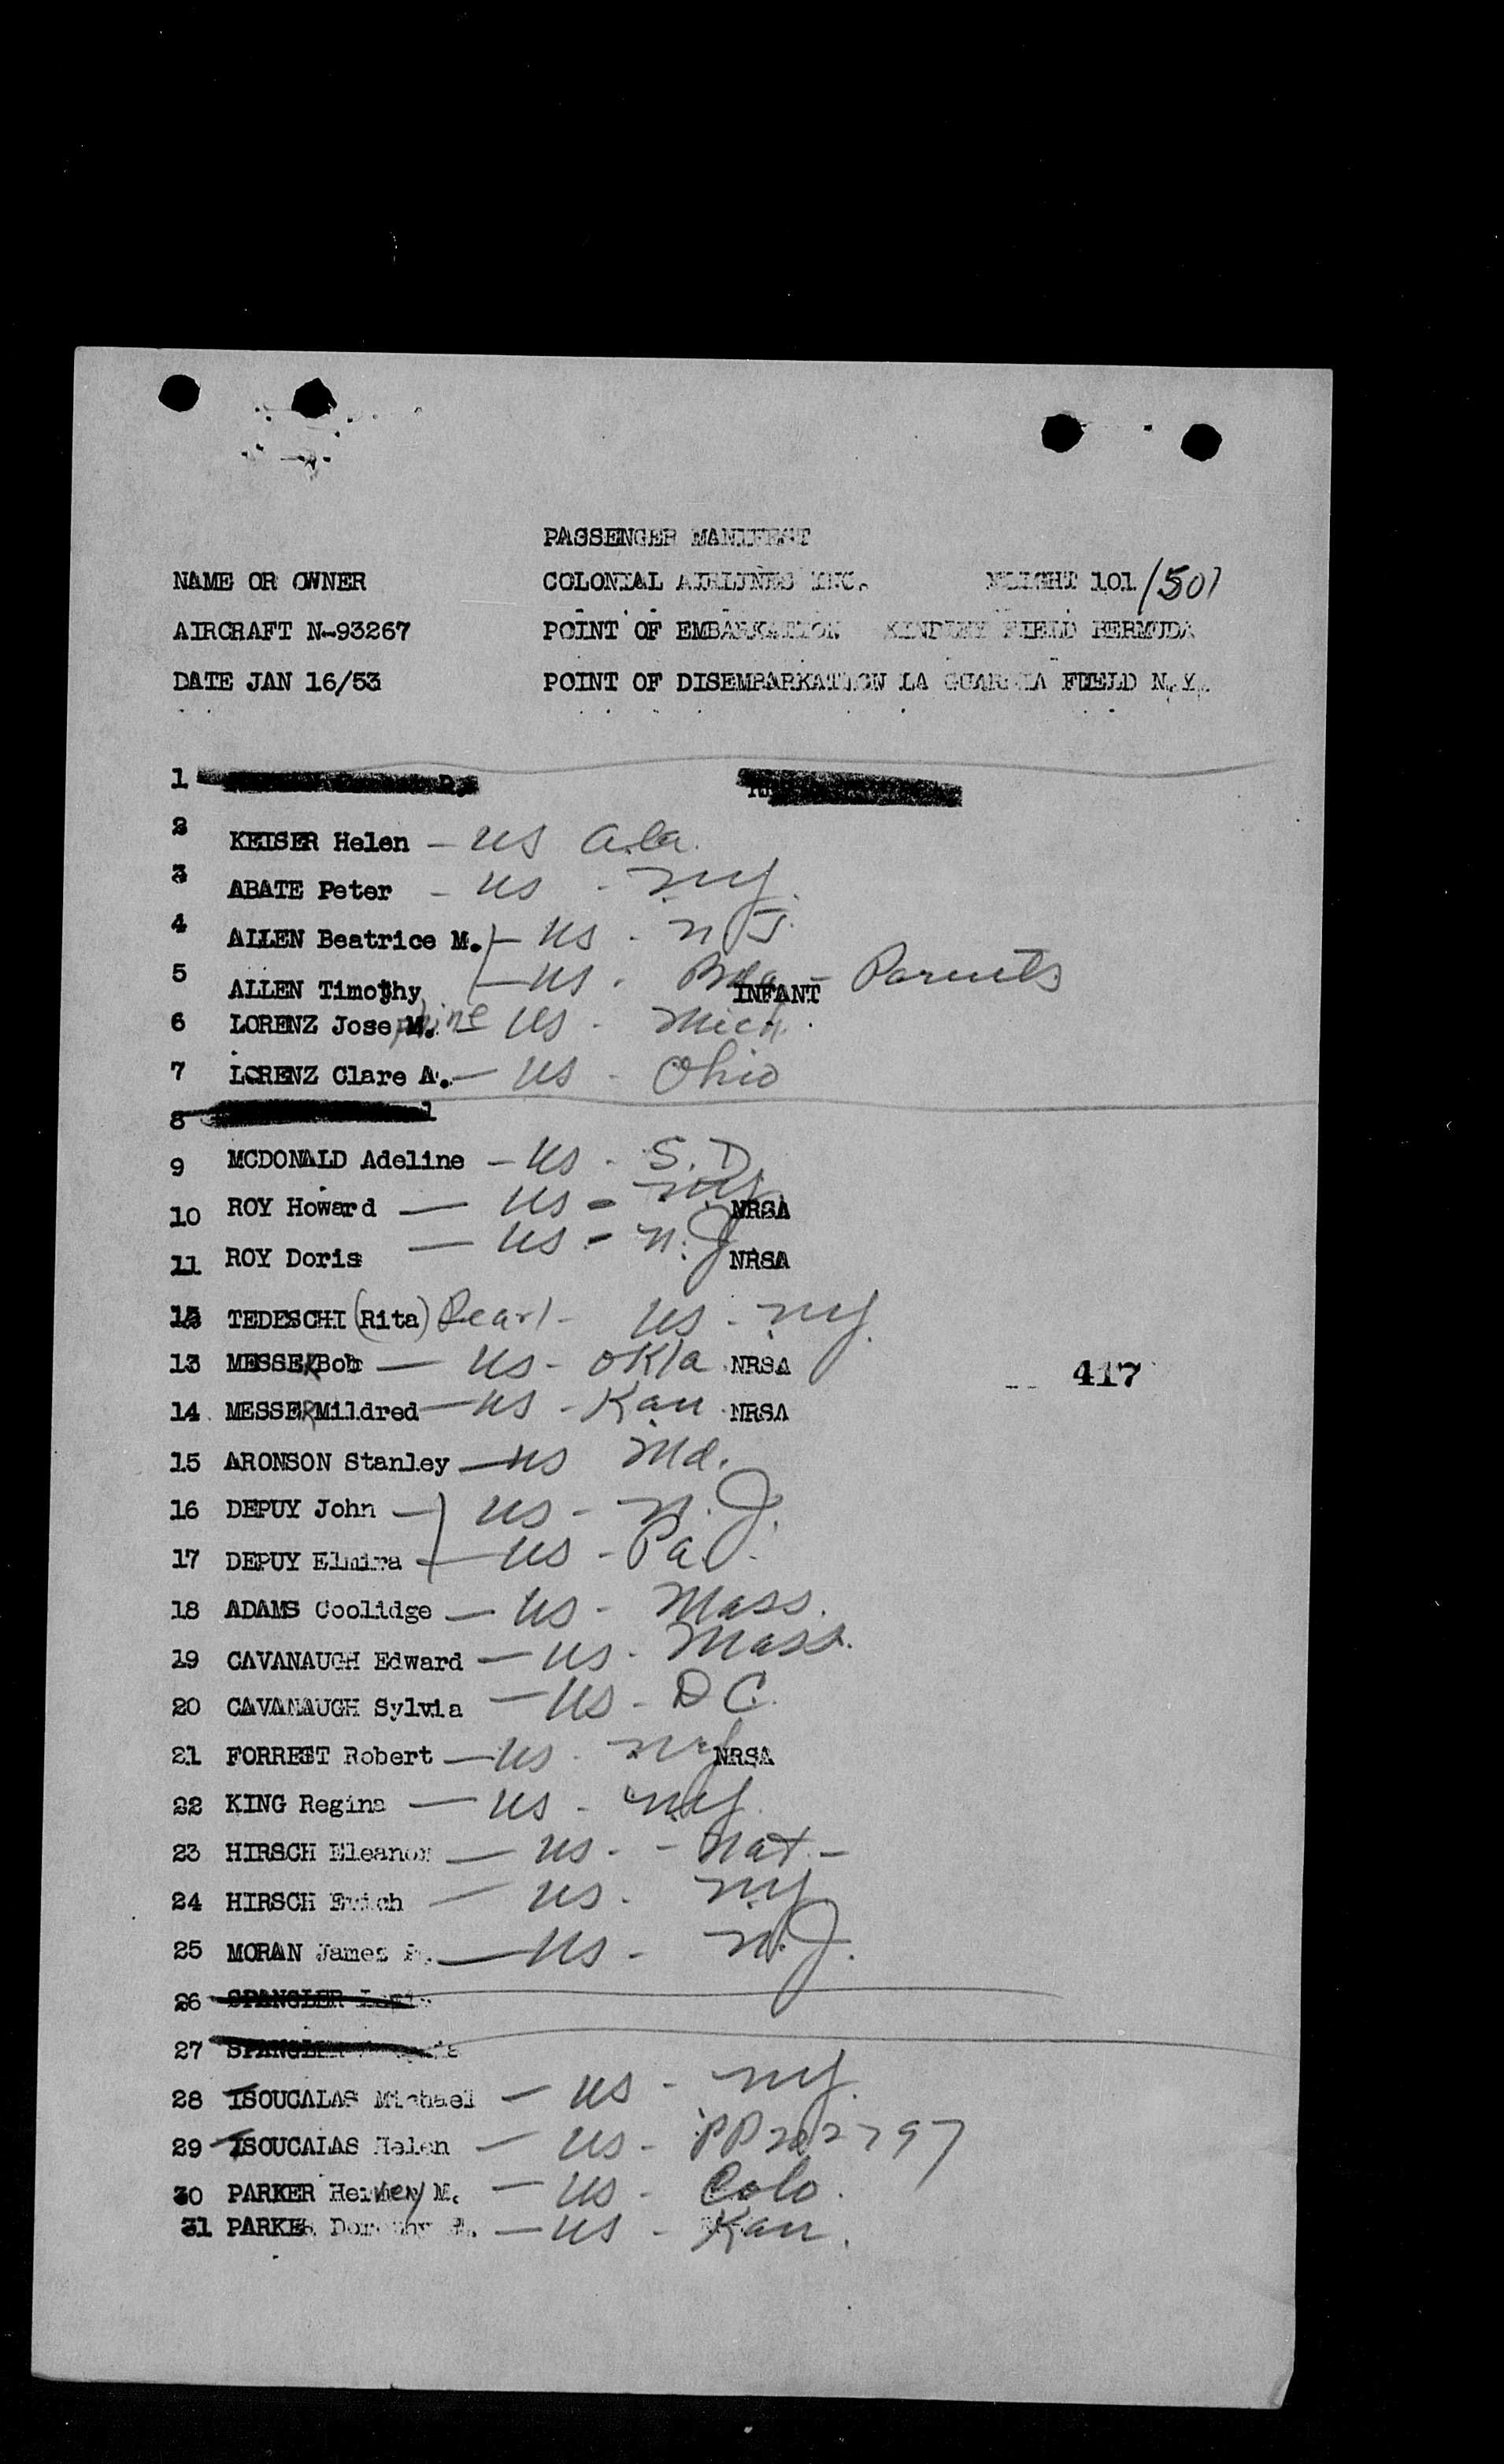 PASSENGER MANIFEST
NAME OR OWNER COLONIAL AIRLINES INC. FLIGHT 101/501
AIRCRAFT N-93267 POINT OF EMBARKATION KINDLEY FIELD BERMUDA
DATE JAN 16/53 POINT OF DISEMBARKATION LA GUARDIA FIELD N.Y.
1
2 KEISER Helen - US Ala.
3 ABATE Peter - US - NY.
4 ALLEN Beatrice M. - US - NJ.
5 ALLEN Timothy - US - Bda - INFANT Parents
6 LORENZ Josephine M. US - Mich.
7 LORENZ Clare A. - US - Ohio
8
9 MCDONALD Adeline - US - S.D.
10 ROY Howard - US - NY NRSA
11 ROY Doris - US - N.J NRSA
12 TEDESCHI (Rita) Pearl - US - NY.
13 MESSER Bob - US - Okla NRSA 417
14 MESSER Mildred - US - Kan NRSA
15 ARONSON Stanley - US Md.
16 DEPUY John - US - N.J.
17 DEPUY Elmira - US - Pa.
18 ADAMS Coolidge - US - Mass.
19 CAVANAUGH Edward - US - Mass.
20 CAVANAUGH Sylvia - US - DC.
21 FORREST Robert - US - NY NRSA
22 KING Regina - US - NY.
23 HIRSCH Eleanor - US - - Nat. -
24 HIRSCH Erich - US - NY
25 MORAN James - US - N.J.
26 SPANGLER
27 SPANGLER
28 TSOUCALAS Michael - US - NY.
29 TSOUCALAS Helen - US - PP 202797
30 PARKER Hervey M. - US - Colo.
31 PARKER Dorothy - US - Kan.